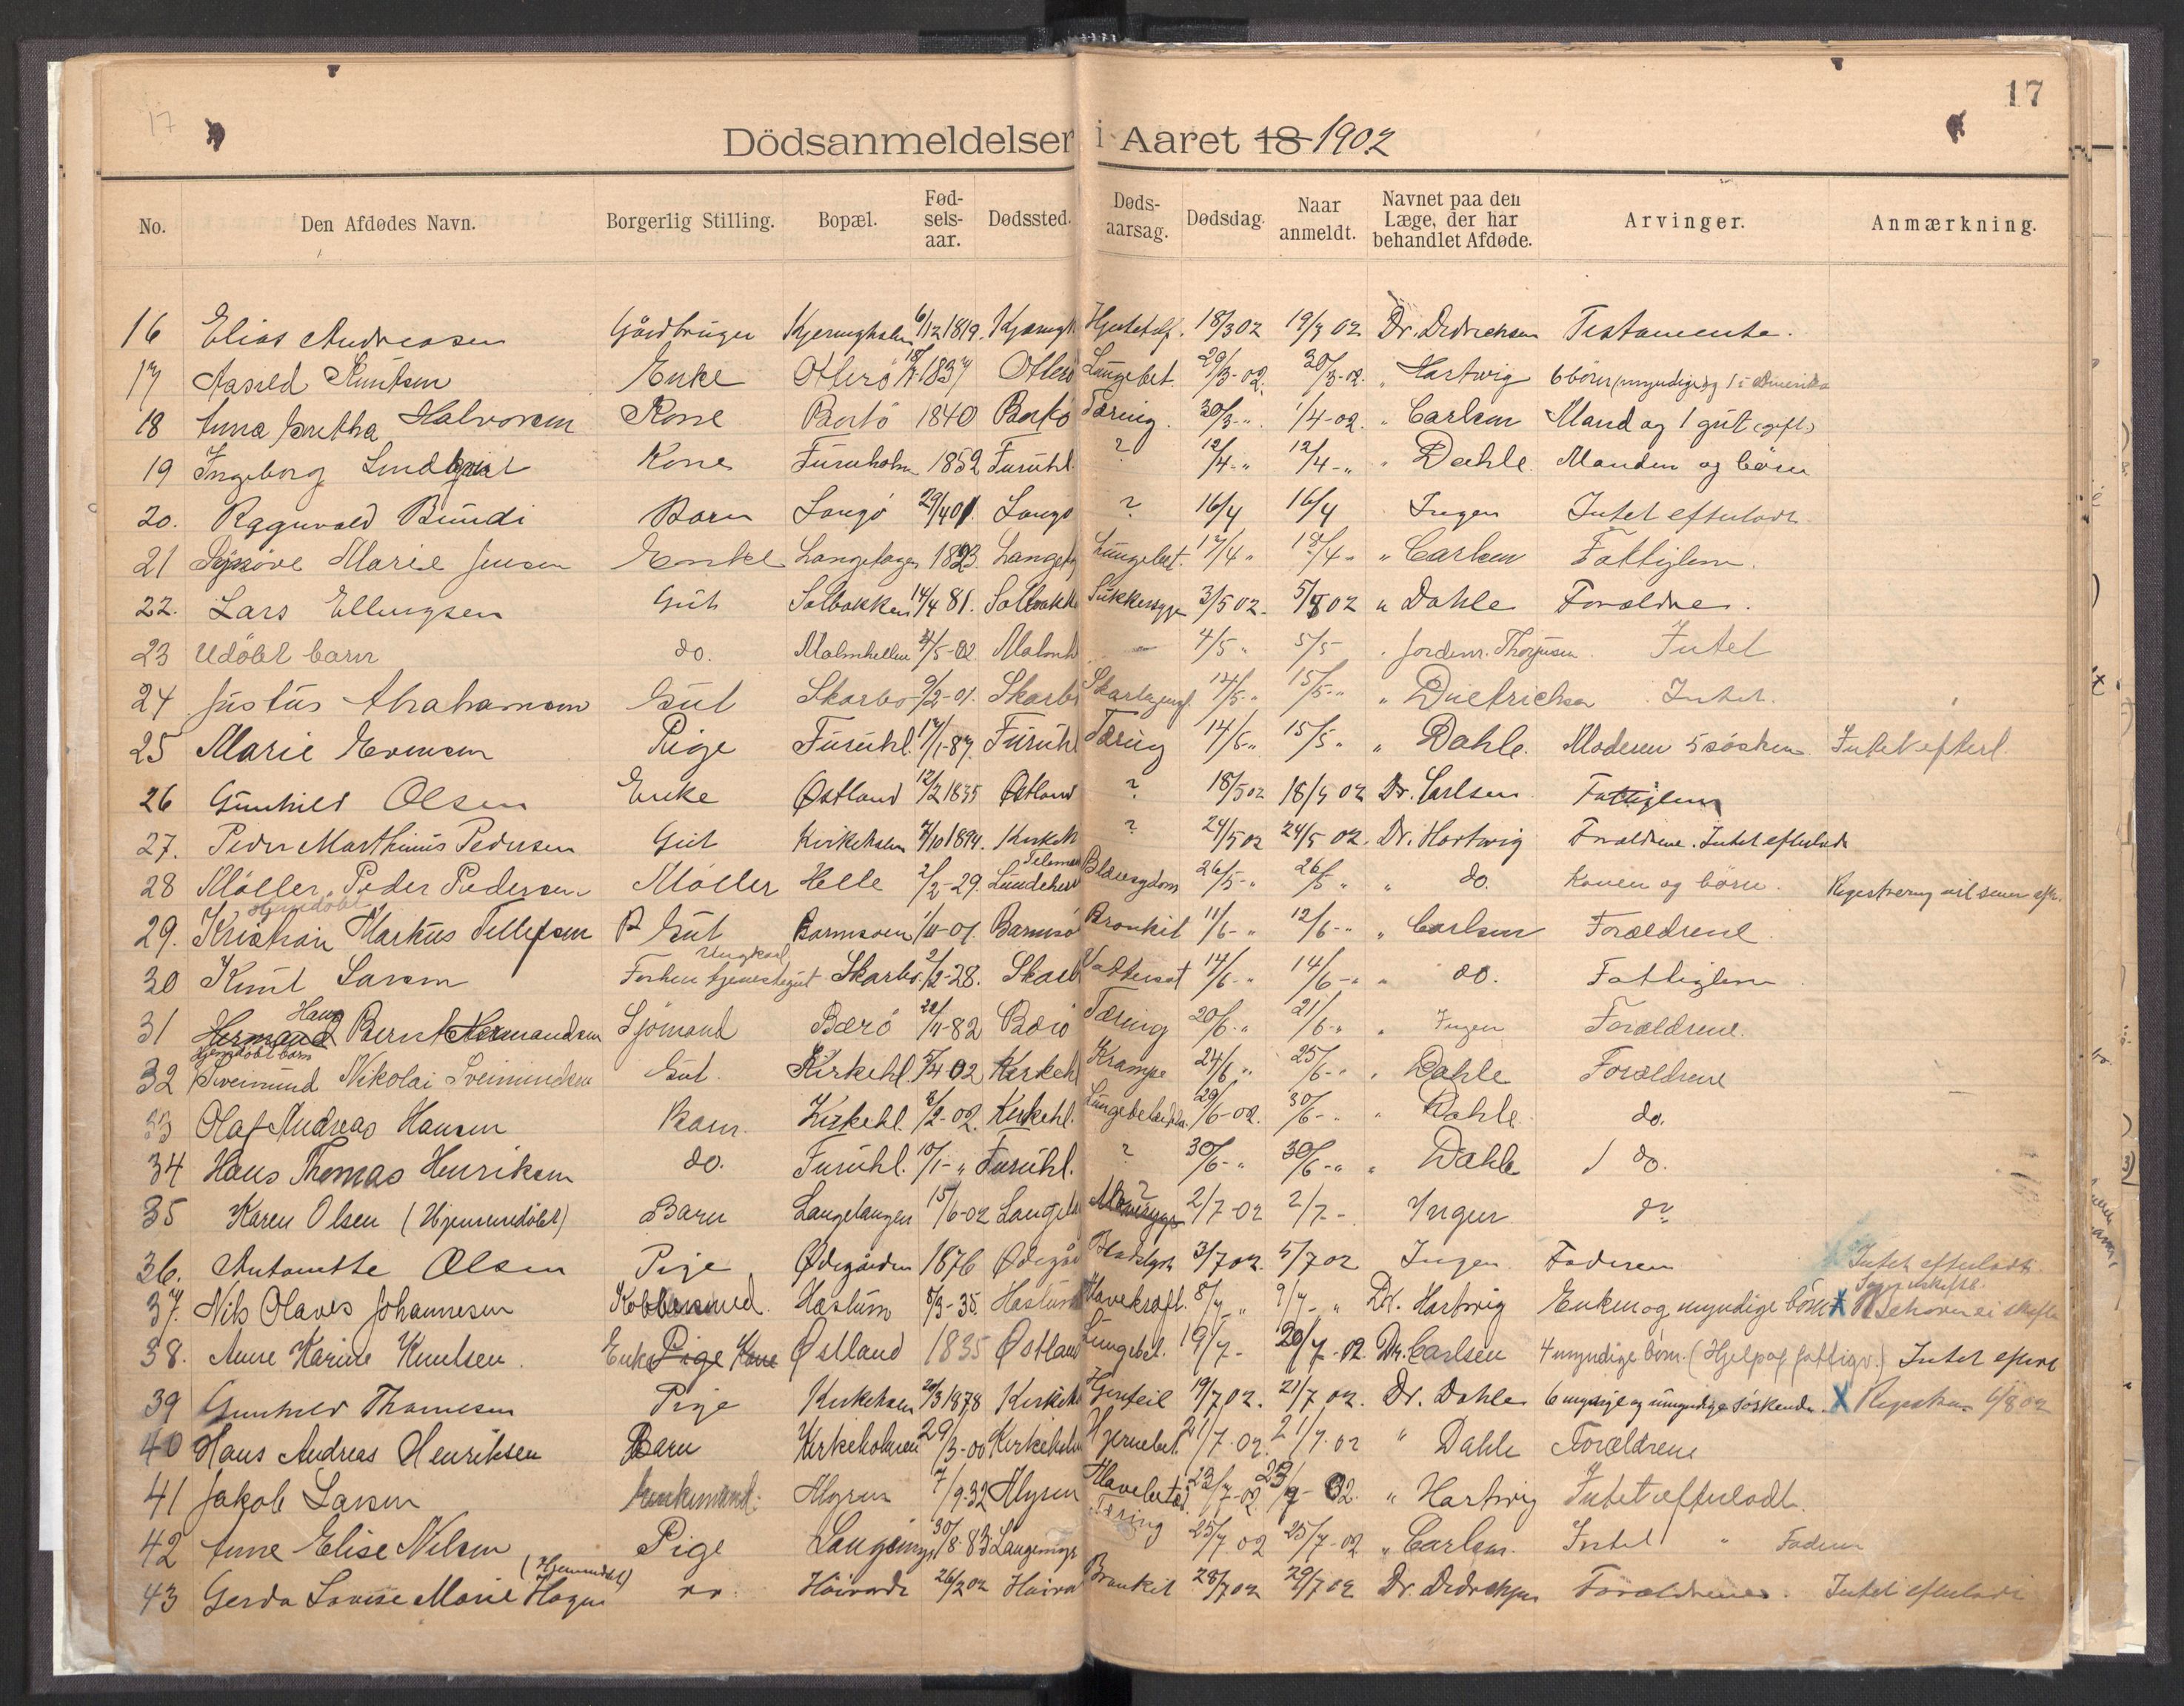 17
17
Dödsanmeldelser i Aaret 18 1902
No. Den Afdødes Navn. Borgerlig Stilling. Bopæl. Fød-sels-aar. Dødssted. Døds-aarsag. Dødsdag. Naar anmeldt. Navnet paa den Læge, der har behandlet Afdøde. Arvinger. Anmærkning.
16 Elias Andreasen Gårdbruger 6/12 1819. 18/3 02 19/3 02 Dr. Didrichsen Testamente.
17 Enke Otterö 1837 Otterö Lungebet. 29/3-02. 30/3-02. " Hartwig 6 börn (myndige og 1 i Amerika
18 Anna Halvorsen Kone 1840 Tæring. 30/3-". 1/4-02. " Carlsen Mand og 1 gut (gift)
19 Ingeborg Kone Furuholm 1852 Furuhl. ? 12/4-" 12/4-" " Dahle. Manden og börn
20. Ragnvald Bundi Barn Langö 29/4 01. Langö ? 16/4 16/4 Ingen Intet efterladt
21 Marie Jensen Enke Langetangen 1823. Lungebet. 17/4 " 18/4 " " Carlsen Fattiglem.
22. Lars Ellingsen Gut Solbakken 14/4 81. Solbakk Sukkersyge 3/5 02. 5/5 02 " Dahle Forældre.
23 Udöbt barn do. Malmhellen 4/5-02 Malmh — 4/5 " 5/5 " Jordm. Intet
24 Justus Abrahamsen Gut Skarbo 9/2-01. Skarbo 14/5-" 15/5-" " Dietrichsen Intet.
25 Marie Evensen Pige Furuhl. 17/1-87. Furuhl Tæring 14/5-" 15/5 " " Dahle. Moderen 5 søsken Intet efterl.
26 Gunhild Olsen Enke Østland 12/2 1835 Østland ? 18/5 02 18/5 02 Dr. Carlsen Fattiglem
27. Peder Marthinus Pedersen Gut Kirkeholm 7/10 1894. Kirkeh ? 24/5 02 24/5 02. Dr. Hartwig Forældrene. Intet efterladt
28 Möller, Peder Pedersen Möller Helle 2/2-29. Lundeher Telemar Blæresygdom 26/5-" 26/5 " " do. Konen og börn. Registrering vil senere
29. Kristian Markus Tellefsen Hjemdöbt Gut Barmsoen 1/11-01. Barmsö Bronkit 11/6-" 12/6-" " Carlsen Forældrene
30 Knut Larsen Ungkarl, tjenestegut Skarbo. 2/2-28. Skarb Vattersot 14/6-" 14/6-" " do. Fattiglem
31 Hermand Hans Bernt Hermandsen Sjömand Bærö 22/11-82 Bærö Tæring 20/6-" 21/6-" " Ingen Forældrene.
32 hjemdöbt barn Sveinund Nikolai Sveinundsen Gut. Kirkehl. 5/4 02 Kirkehl Krampe 24/6 " 25/6-" " Dahle Forældrene
33 Olaf Andreas Hansen Barn. Kirkehl. 8/2-02. Kirkehl. 29/6-02. 30/6-" " Dahle. do.
34 Hans Thomas Henriksen do. Furuhl. 10/1-" Furuhl. ? 30/6-" 30/6-" " Dahle do.
35 Karen Olsen (Hjemmedöbt) Barn Langetangen 15/6-02 ? 2/7-02 2/7- Ingen do
36. Antonette Olsen Pige Ødegården 1876 Ødegår 3/7 02. 5/7 02 Ingen Faderen Intet efterladt.
37. Nils Olaves Johannesen Kobbersmed. Haslum 5/3-35. Haslum Mavekræft. 8/7 " 9/7-" Dr. Hartwig Enken og myndige börn X
38. Anne Karine Knutsen. Enke Pige Kone Østland 1835 Østland Lungebet. 19/7- 20/7-02. Dr. Carlsen 4 myndige börn. (Hjelp af fattigv.) Intet
39 Gunhild Thomesen Pige Kirkeholm 20/3 1878 Hjertfeil 19/7 02. 21/7 02. Dr. Dahle 6 myndige og umyndige söskende. X 6/8 02
40 Hans Andreas Henriksen Barn Kirkeholmen 29/3-00 Kirkeholm Hjernebet. 21/7-02. 21/7-02 " Dahle Forældrene
41 Jakob Larsen Enkemand. 7/9-32 23/7-02 02. " Hartwig Intet efterladt.
42 Anne Elise Nilsen Pige 30/8-83. Tæring 25/7 02 25/7-02 " Carlsen. Intet " Faderen
43 Gerda Lovise Marie Hagen (Hjemmdöbt) 26/2 02 Bronkit 28/7 02 29/7 02 Dr. Forældrene. Intet efterladt